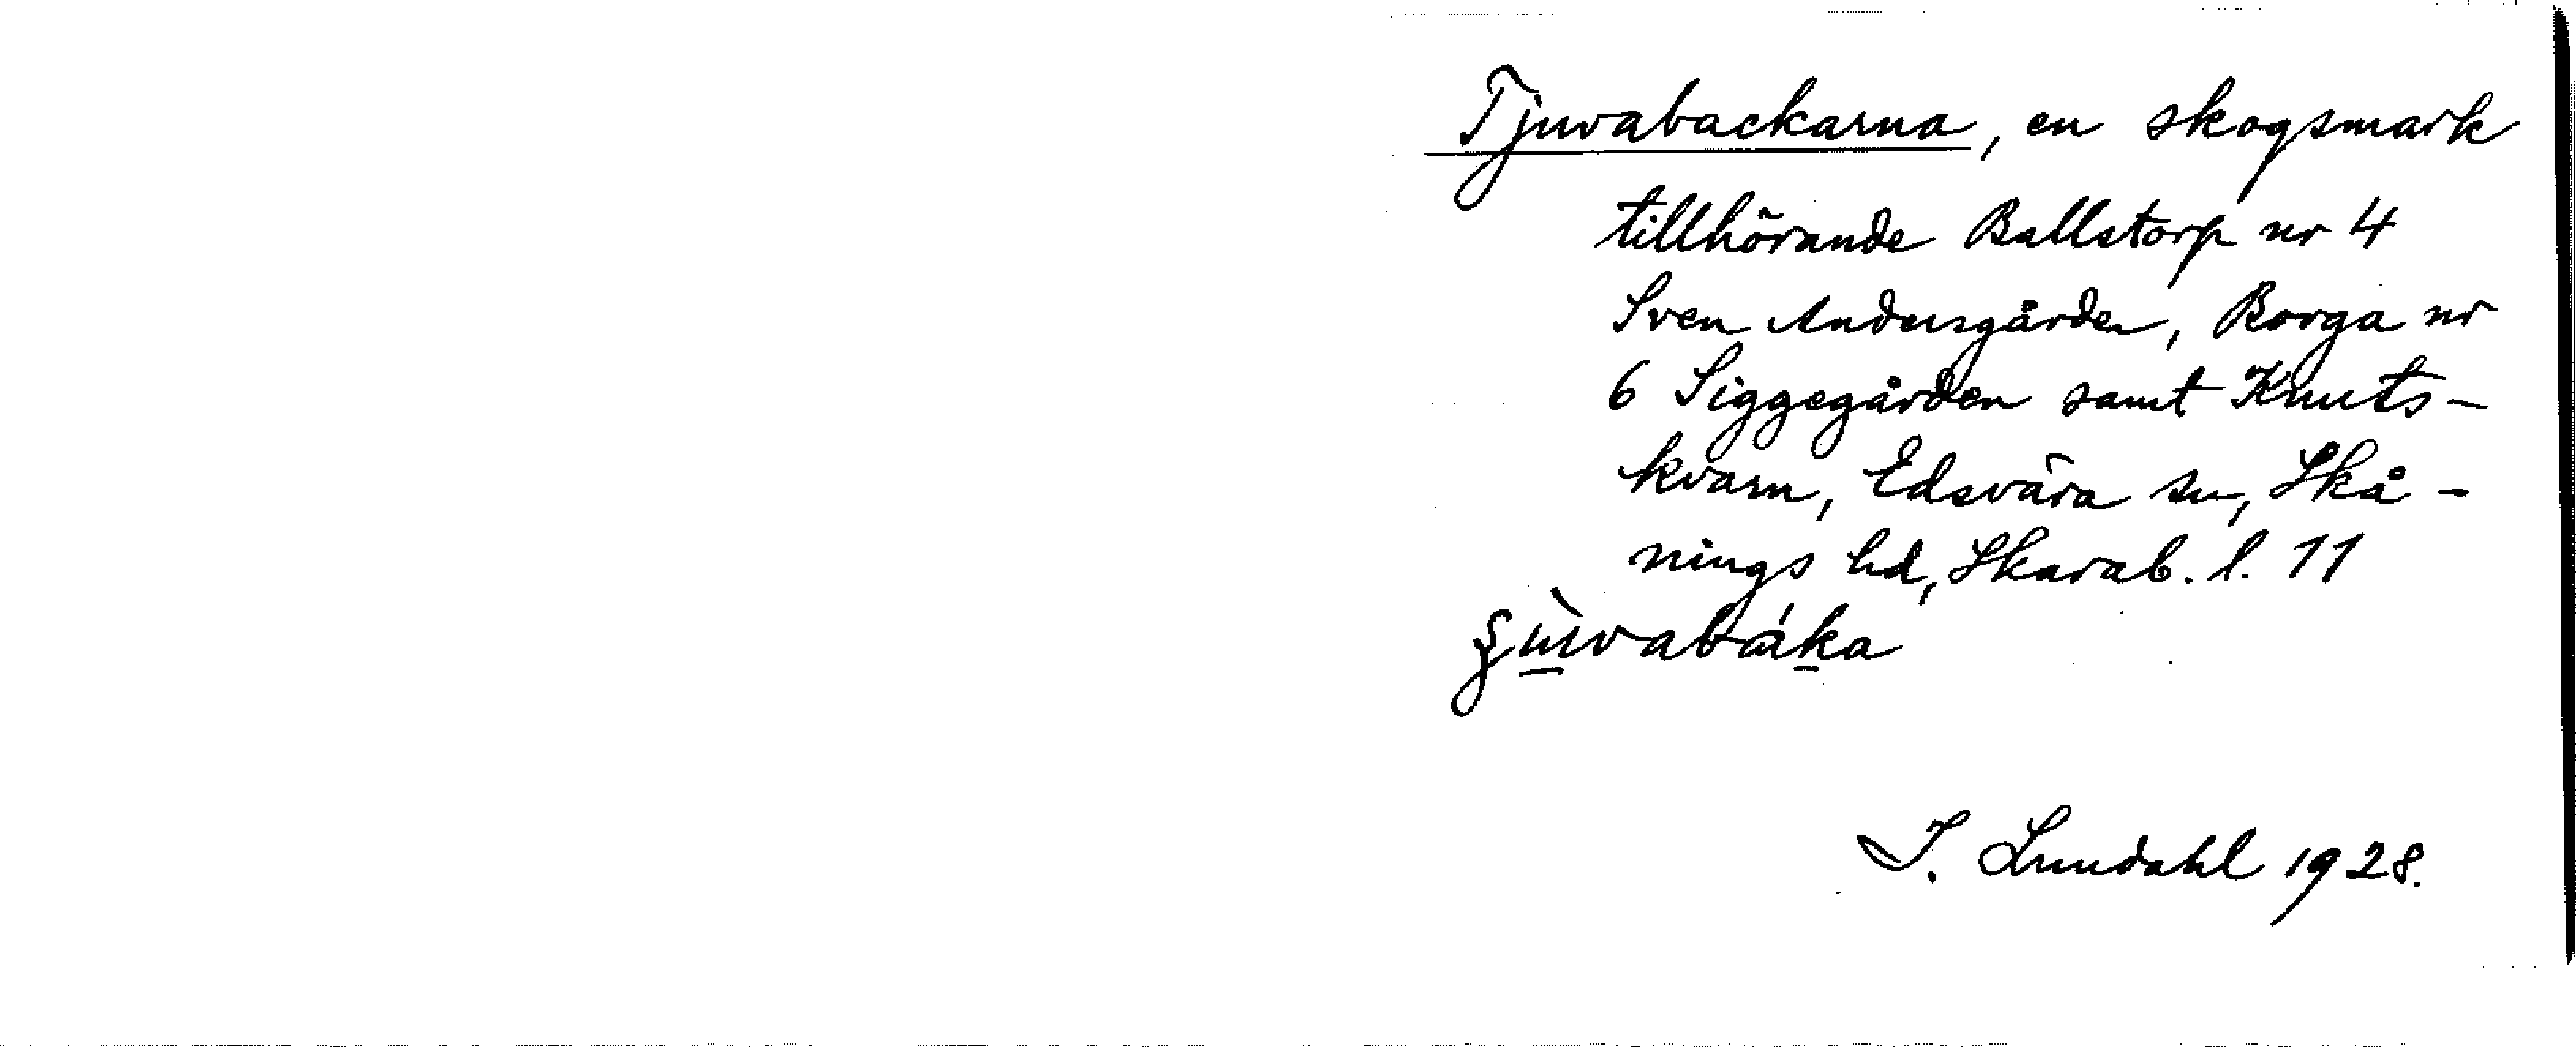 Tjuvabackarna, en skogsmark
tillhörande Ballstorp nr 4
Sven Andersgården, Borga nr
6 Siggegården samt Knuts-
kvarn, Edsvära sn, Skå-
nings hd, Skarab. l. 11
I. Lundahl 1928.